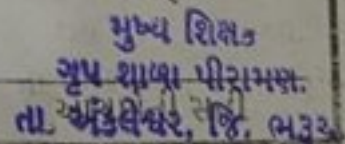 મુખ્ય શિક્ષક
ગૃપ શાળા પીરામણ.
તા. અંકલેશ્વર, જિ. ભરૂચ